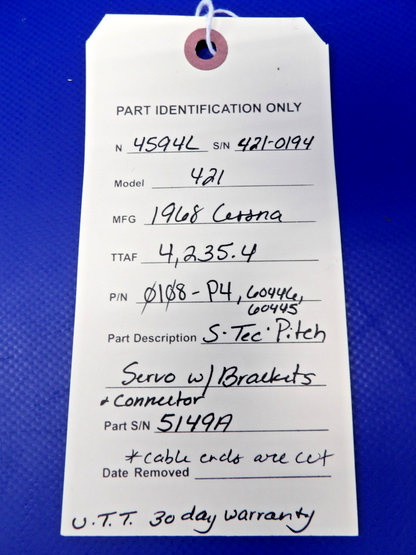 PART IDENTIFICATION ONLY
N 4594L S/N 421-0194
Model 421
MFG 1968 Cessna
TTAF 4,235.4
P/N Ø108-P4, 60446,
60445
Part Description S-Tec Pitch
Servo w/ Brackets
& Connector
Part S/N 5149A
*cable ends are cut
Date Removed
U.T.T. 30 day warranty